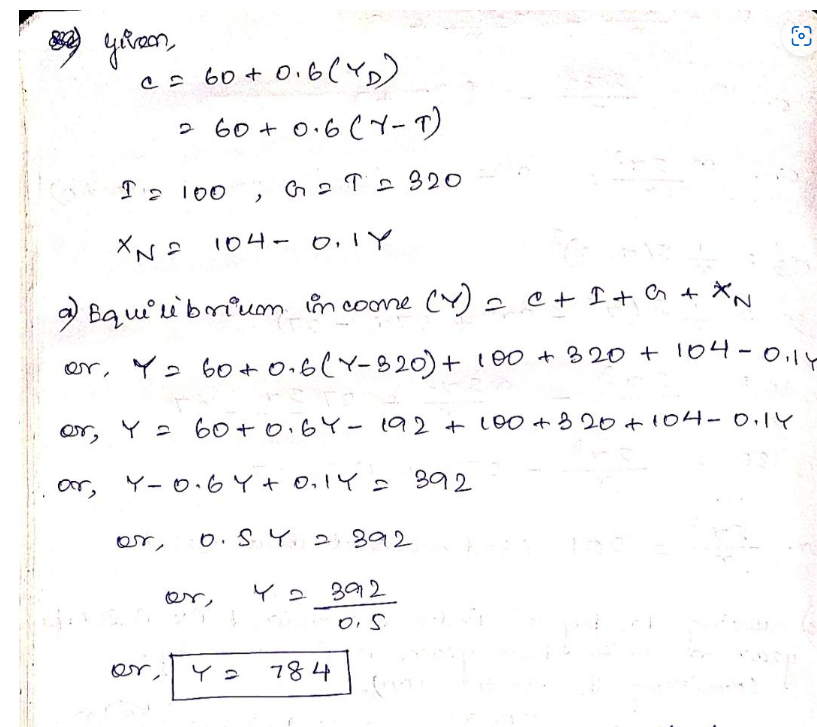 given,
C = 60 + 0.6(Y_D)
= 60 + 0.6(Y-T)
I = 100 , G = T = 320
X_N = 104 - 0.1Y
a) Equilibrium income (Y) = C + I + G + X_N
or, Y = 60 + 0.6(Y-320) + 100 + 320 + 104 - 0.1Y
or, Y = 60 + 0.6Y - 192 + 100 + 320 + 104 - 0.1Y
or, Y - 0.6Y + 0.1Y = 392
or, 0.5 Y = 392
or, Y = 392/0.5
or, Y = 784